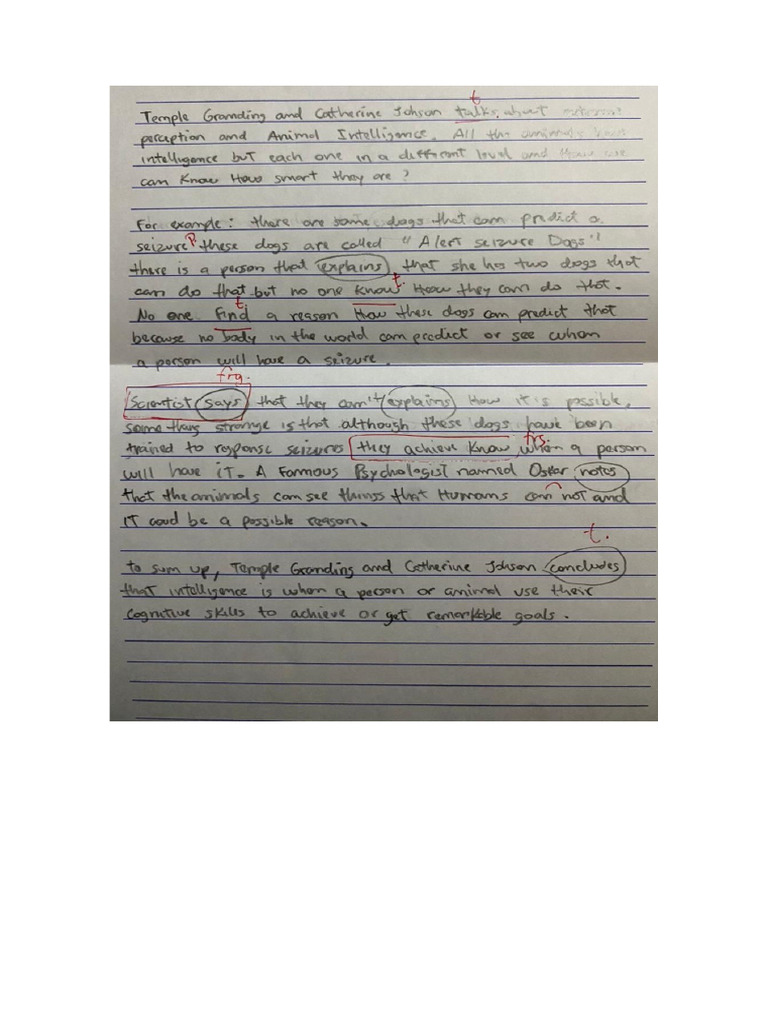 t
Temple Granding and Catherine Johson talks about
perception and Animal Intelligence. All the animals have
intelligence but each one in a different level and How we
can Know How smart they are?
For example: there are some dogs that can predict a
seizure P these dogs are called "Alert seizure Dogs"
there is a person that explains that she has two dogs that
t.
can do that but no one know How they can do that.
t
No one Find a reason How these dogs can predict that
because no body in the world can predict or see when
a person will have a seizure.
frg.
Scientist says that they can't explains How it is possible.
something strange is that although these dogs have been
trained to response seizures they achieve Know when a person
frs.
will have it. A Famous Psychologist named Oskar notes
that the animals can see things that Humans can not and
IT coud be a possible reason.
t.
to sum up, Temple Granding and Catherine Johson concludes
that intelligence is when a person or animal use their
cognitive skills to achieve or get remarkable goals.